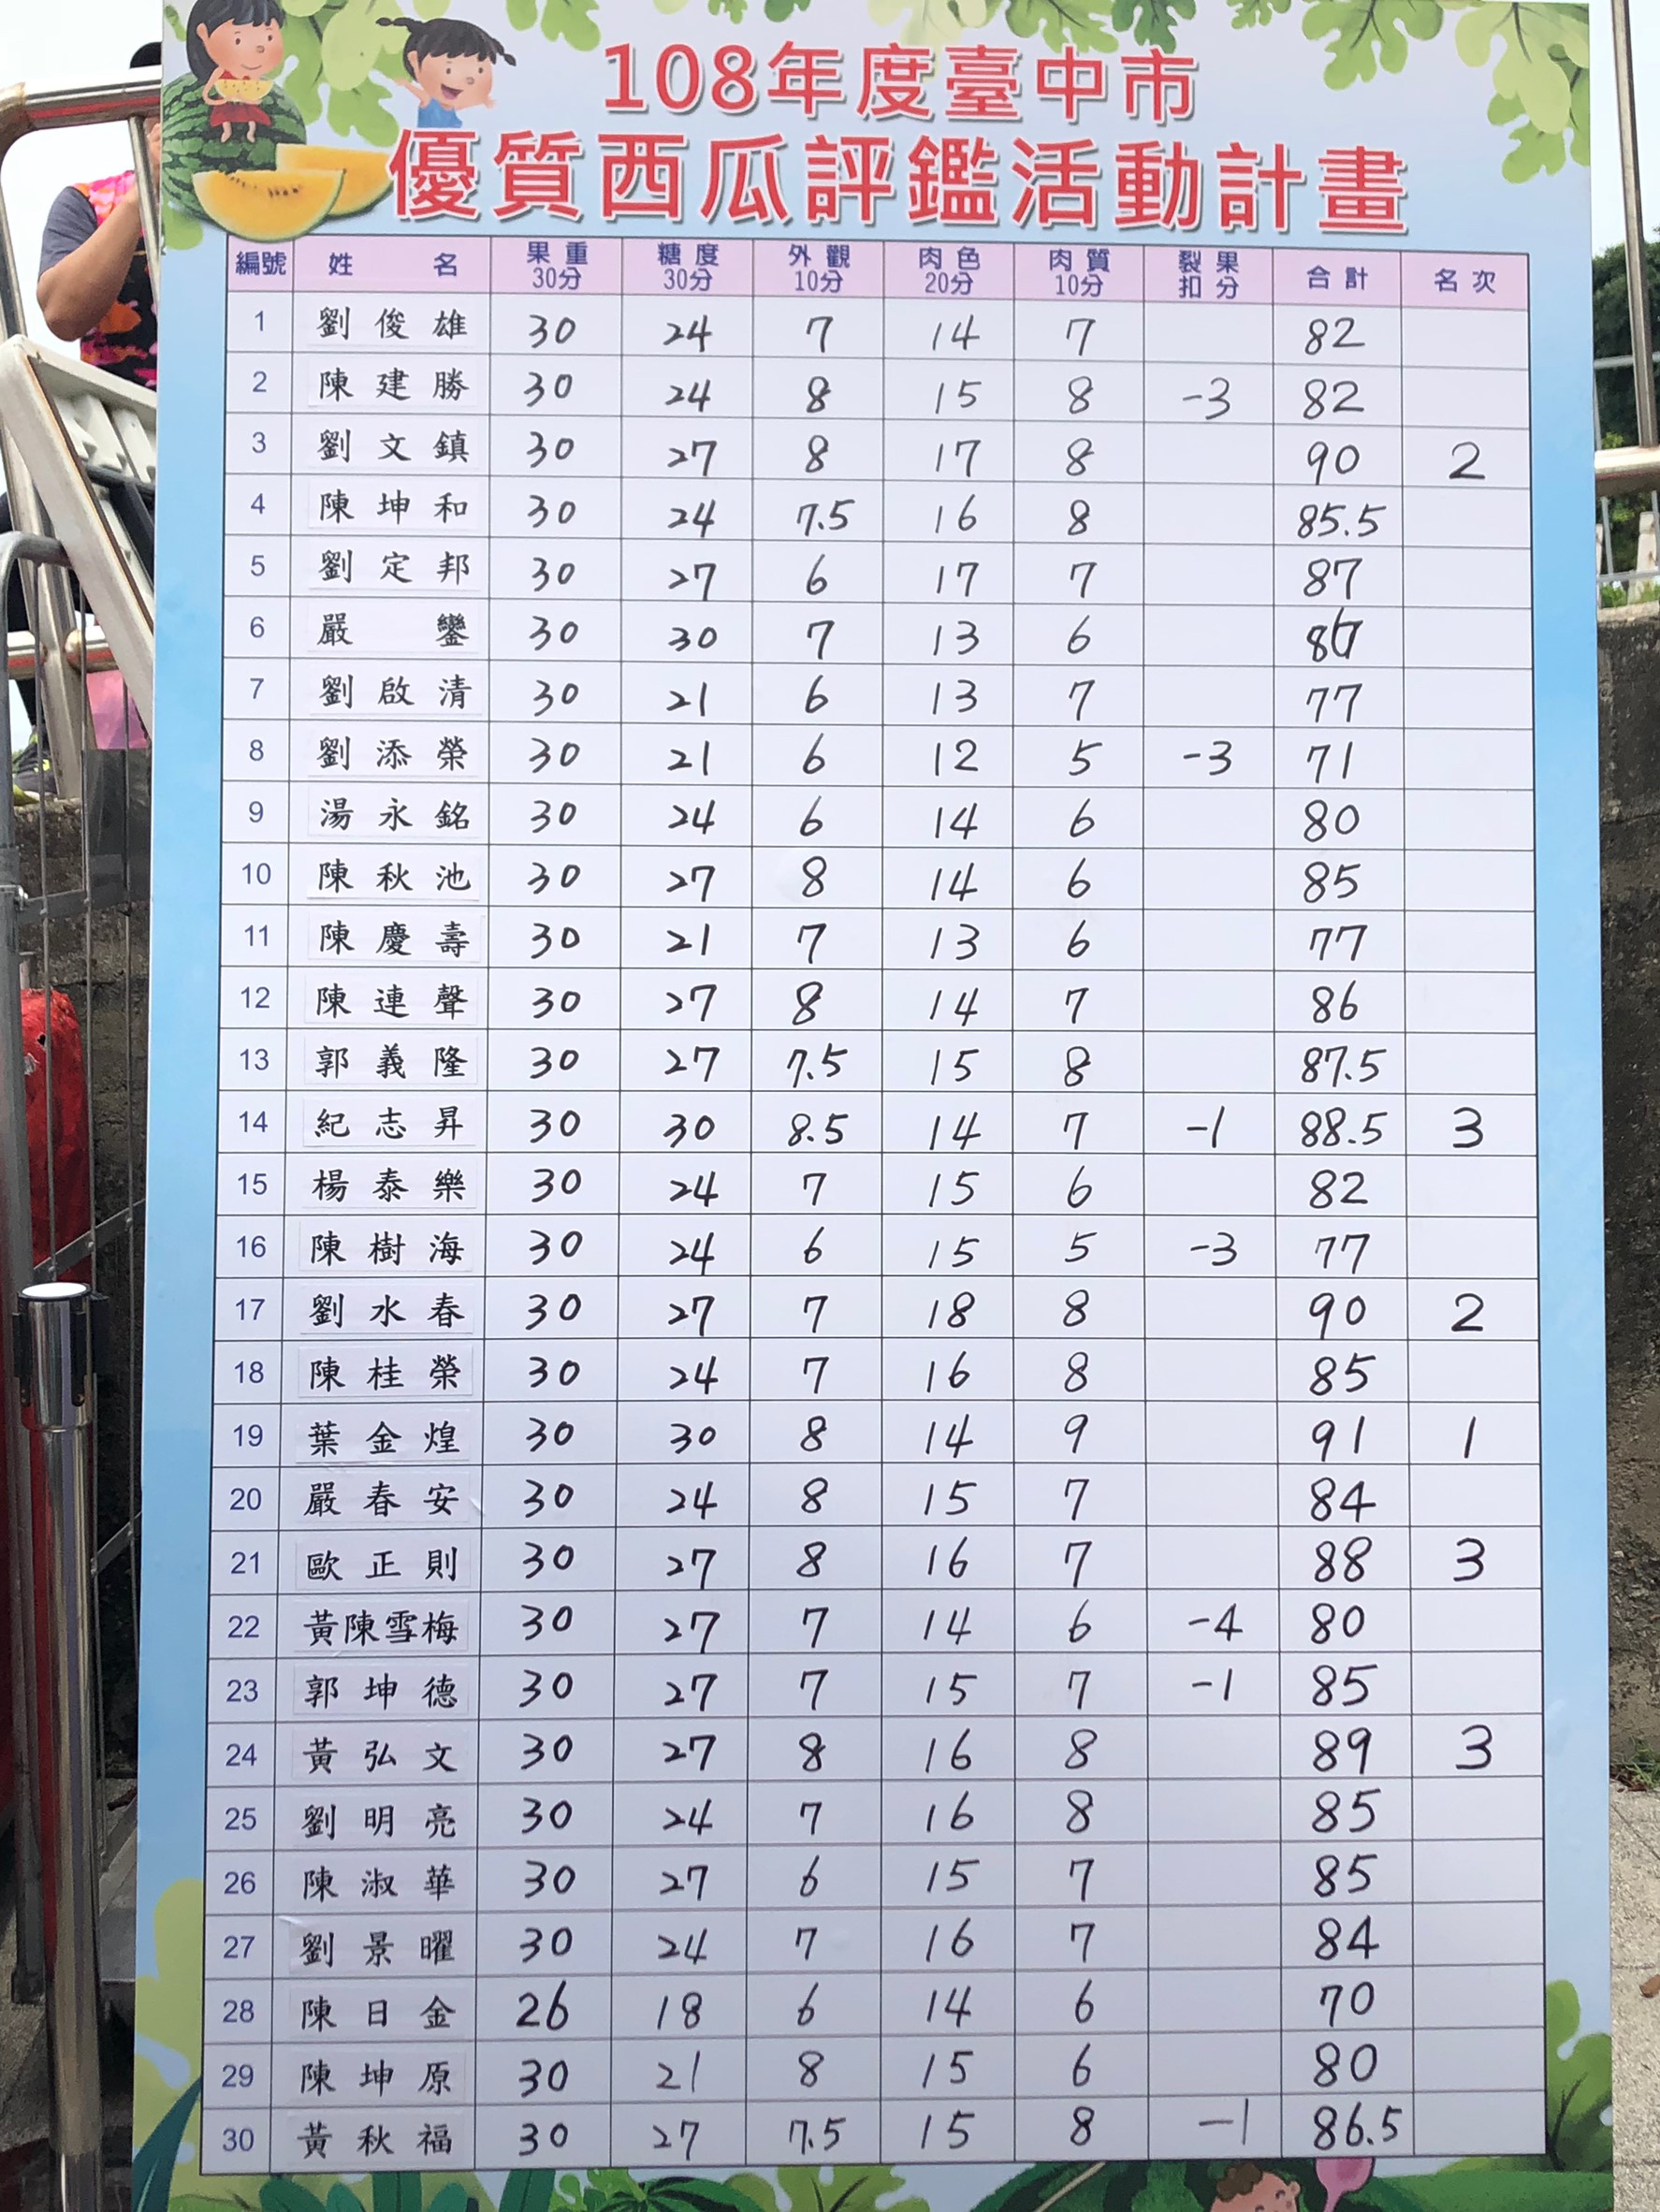 108年度臺中市
優質西瓜評鑑活動計畫
編號 姓名 果重30分 糖度30分 外觀10分 肉色20分 肉質10分 裂果扣分 合計 名次
1 劉俊雄 30 24 7 14 7 82
2 陳建勝 30 24 8 15 8 -3 82
3 劉文鎮 30 27 8 17 8 90 2
4 陳坤和 30 24 7.5 16 8 85.5
5 劉定邦 30 27 6 17 7 87
6 嚴鑾 30 30 7 13 6
7 劉啟清 30 21 6 13 7 77
8 劉添榮 30 21 6 12 5 -3 71
9 湯永銘 30 24 6 14 6 80
10 陳秋池 30 27 8 14 6 85
11 陳慶壽 30 21 7 13 6 77
12 陳連聲 30 27 8 14 7 86
13 郭義隆 30 27 7.5 15 8 87.5
14 紀志昇 30 30 8.5 14 7 -1 88.5 3
15 楊泰樂 30 24 7 15 6 82
16 陳樹海 30 24 6 15 5 -3 77
17 劉水春 30 27 7 18 8 90 2
18 陳桂榮 30 24 7 16 8 85
19 葉金煌 30 30 8 14 9 91 1
20 嚴春安 30 24 8 15 7 84
21 歐正則 30 27 8 16 7 88 3
22 黃陳雪梅 30 27 7 14 6 -4 80
23 郭坤德 30 27 7 15 7 -1 85
24 黃弘文 30 27 8 16 8 89 3
25 劉明亮 30 24 7 16 8 85
26 陳淑華 30 27 6 15 7 85
27 劉景曜 30 24 7 16 7 84
28 陳日金 26 18 6 14 6 70
29 陳坤原 30 21 8 15 6 80
30 黃秋福 30 27 7.5 15 8 -1 86.5